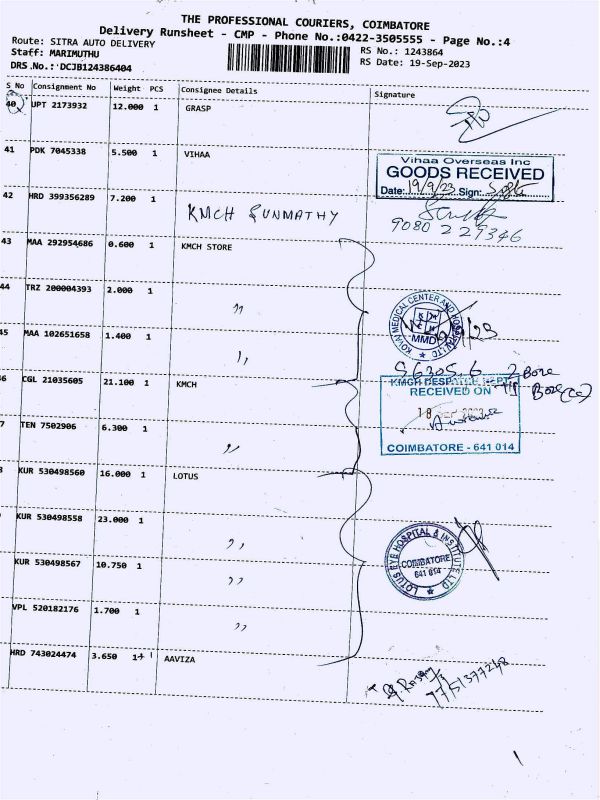 THE PROFESSIONAL COURIERS, COIMBATORE
Delivery Runsheet - CMP - Phone No.:0422-3505555 - Page No.:4
Route: SITRA AUTO DELIVERY
RS No.: 1243864
Staff: MARIMUTHU
RS Date: 19-Sep-2023
DRS No.: DCJB124386404
S No Consignment No Weight PCS Consignee Details Signature
40 UPT 2173932 12.000 1 GRASP
41 PDK 7045338 5.500 1 VIHAA
Vihaa Overseas Inc
GOODS RECEIVED
Date: 19/9/23 Sign:
42 HRD 399356289 7.200 1 KMCH SUNMATHY
9080 229346
43 MAA 292954686 0.600 1 KMCH STORE
44 TRZ 200004393 2.000 1 "
KOVAI MEDICAL CENTER AND HOSPITAL LTD
MMD
45 MAA 102651658 1.400 1 "
2 Box
6 CGL 21035605 21.100 1 KMCH
KMCH DESPATCH DEPT
RECEIVED ON
18 SEP 2023
COIMBATORE - 641 014
7 TEN 7502906 6.300 1 "
KUR 530498560 16.000 1 LOTUS
KUR 530498558 23.000 1 "
LOTUS EYE HOSPITAL & INSTITUTE LTD
COIMBATORE
641 014
KUR 530498567 10.750 1 "
VPL 520182176 1.700 1 "
HRD 743024474 3.650 1 AAVIZA